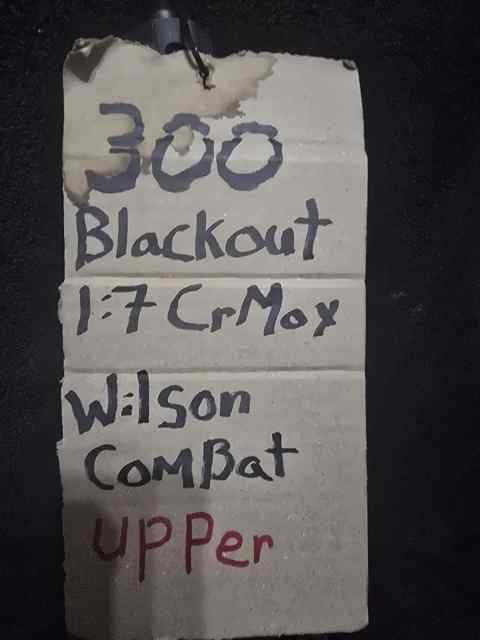 300
Blackout
1:7 CrMox
Wilson
ComBat
UPPer